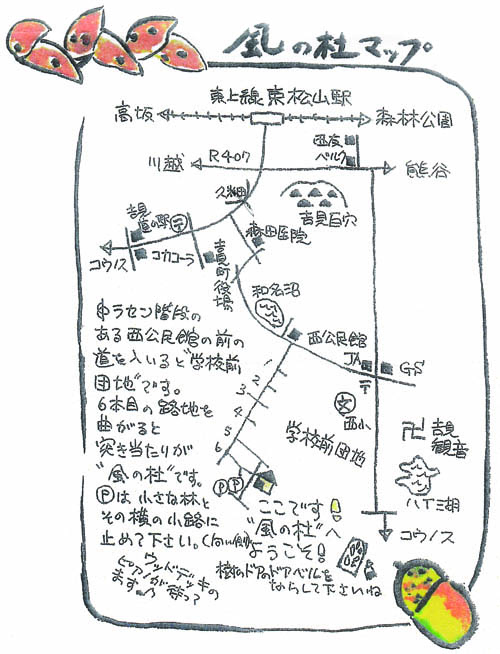 風の杜マップ
東上線東松山駅
高坂
森林公園
川越
R407
西友
ベルク
熊谷
久米田
吉見百穴
吉見
道の駅
〒
森田医院
コウノス
コカコーラ
吉見町役場
和名沼
西公民館
JA
GS
〒
中ラセン階段の
ある西公民館の前の
道を入いると"学校前
団地"です。
6本目の路地を
曲がると
突き当たりが
"風の杜"です。
Ⓟは小さな林と
その横の小路に
止めて下さい。(向い側)
ウッドデッキの
ピアノが待って
ます♪
1
2
3
4
5
6
文
西小
学校前団地
卍
吉見
観音
八丁湖
コウノス
P P
ここです!
"風の杜"へ
ようこそ!
樹のドアのドアベルを
ならして下さいね